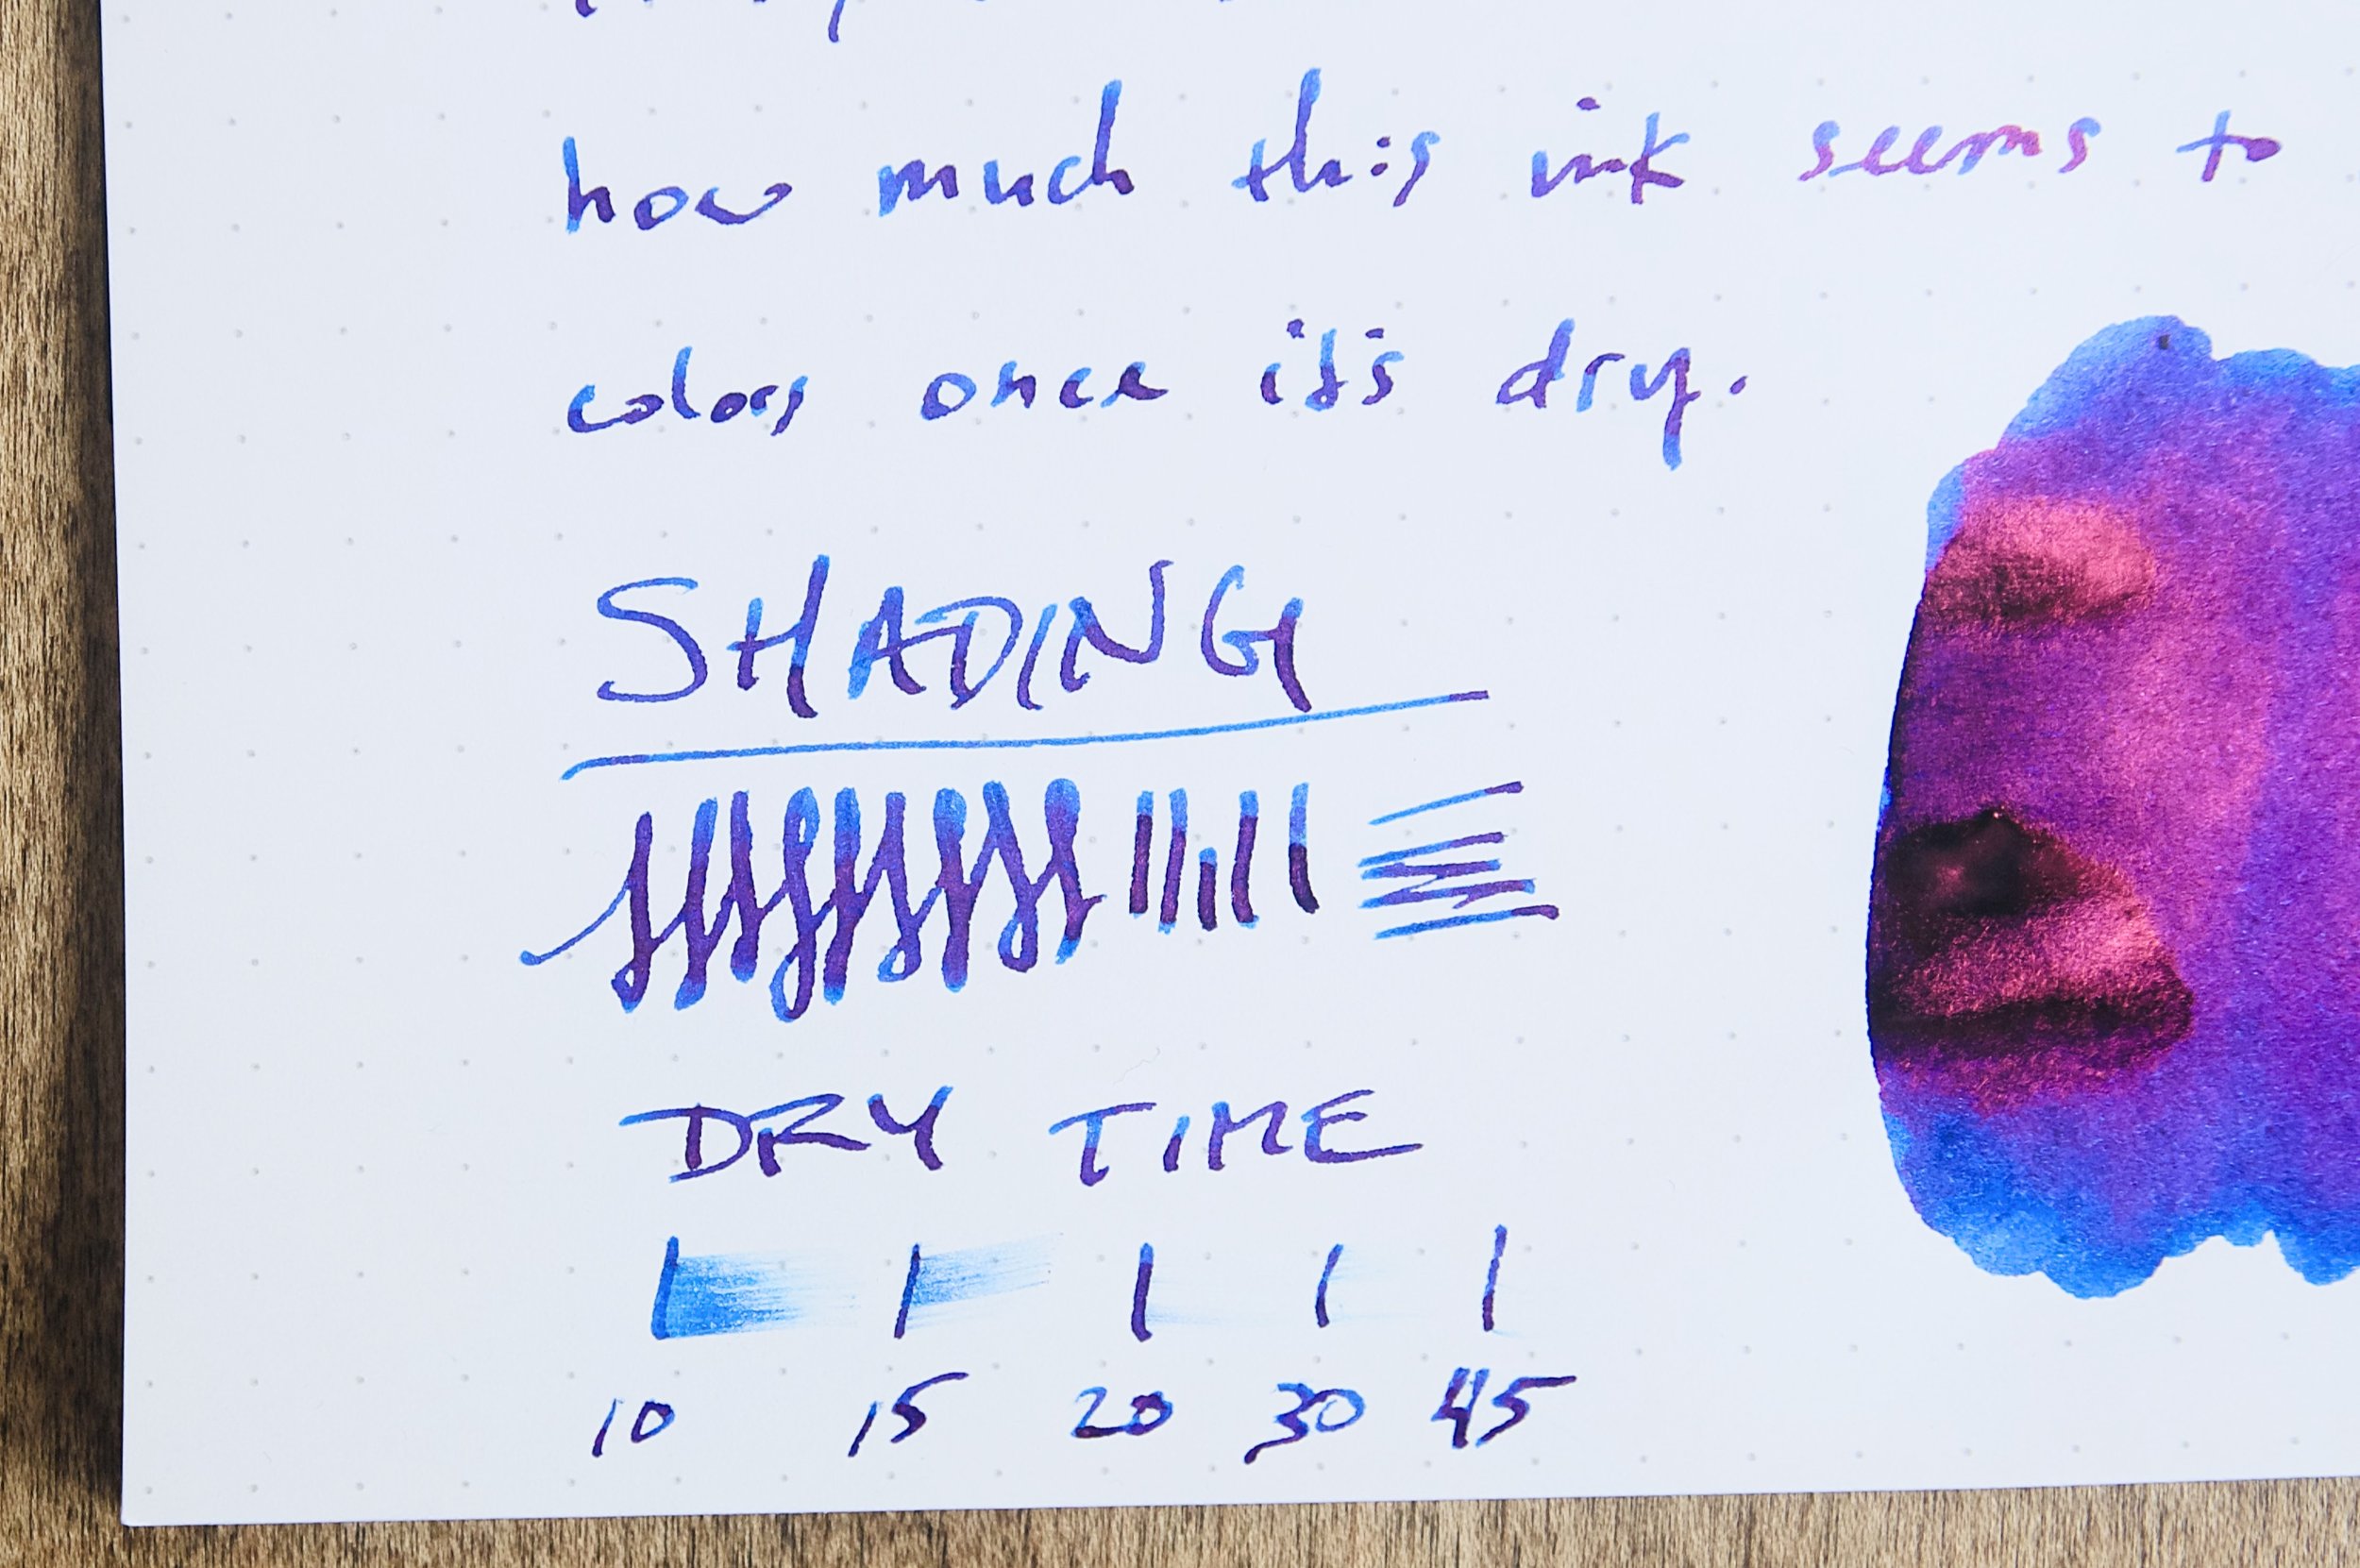 how much this ink seems to
colors once it's dry.
SHADING
DRY TIME
10 15 20 30 45